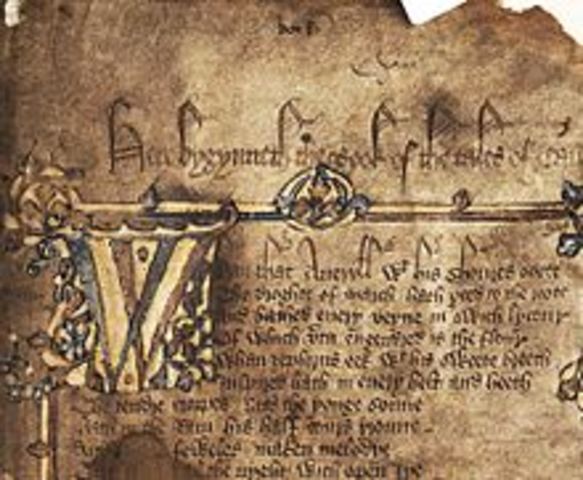 Here bygynneth the book of the tales of
Whan that Aueryll wt his shoures soote
The droghte of march hath perced to the roote
And bathed euery veyne in swich lycour
Of which vertu engendred is the flour
Whan zephirus eek wt his sweete breeth
Inspired hath in euery holt and heeth
The tendre croppes and the yonge sonne
Hath in the Ram his half cours yronne
And foweles maken melodye
the nyght with open Iye